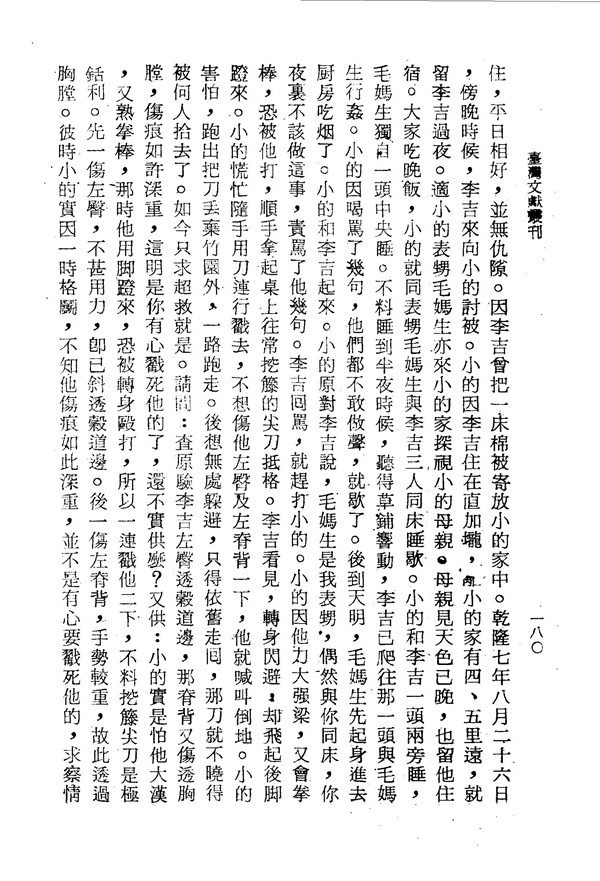 臺灣文獻叢刊
一八〇
住，平日相好，並無仇隙。因李吉曾把一床棉被寄放小的家中。乾隆七年八月二十六日
，傍晚時候，李吉來向小的討被。小的因李吉住在直加壠，離小的家有四、五里遠，就
留李吉過夜。適小的表甥毛媽生亦來小的家探視小的母親。母親見天色已晚，也留他住
宿。大家吃晚飯，小的就同表甥毛媽生與李吉三人同床睡歇。小的和李吉一頭兩旁睡，
毛媽生獨自一頭中央睡。不料睡到半夜時候，聽得草鋪響動，李吉已爬往那一頭與毛媽
生行姦。小的因喝罵了幾句，他們都不敢做聲，就歇了。後到天明，毛媽生先起身進去
厨房吃烟了。小的和李吉起來。小的原對李吉說，毛媽生是我表甥，偶然與你同床，你
夜裏不該做這事，責罵了他幾句。李吉回罵，就趕打小的。小的因他力大强梁，又會拳
棒，恐被他打，順手拿起桌上往常挖籐的尖刀抵格。李吉看見，轉身閃避，却飛起後脚
蹬來。小的慌忙隨手用刀連行戳去，不想傷他左臀及左脊背一下，他就喊叫倒地。小的
害怕，跑出把刀丢棄竹園外，一路跑走。後想無處躲避，只得依舊走回，那刀就不曉得
被何人拾去了。如今只求超救就是。請問：查原驗李吉左臀透穀道邊，那脊背又傷透胸
膛，傷痕如許深重，這明是你有心戳死他的了，還不實供麽？又供：小的實是怕他大漢
，又熟拳棒，那時他用脚蹬來，恐被轉身毆打，所以一連戳他二下，不料挖籐尖刀是極
銛利。先一傷左臀，不甚用力，卽已斜透穀道邊。後一傷左脊背，手勢較重，故此透過
胸膛。彼時小的實因一時格鬭，不知他傷痕如此深重，並不是有心要戳死他的，求察情